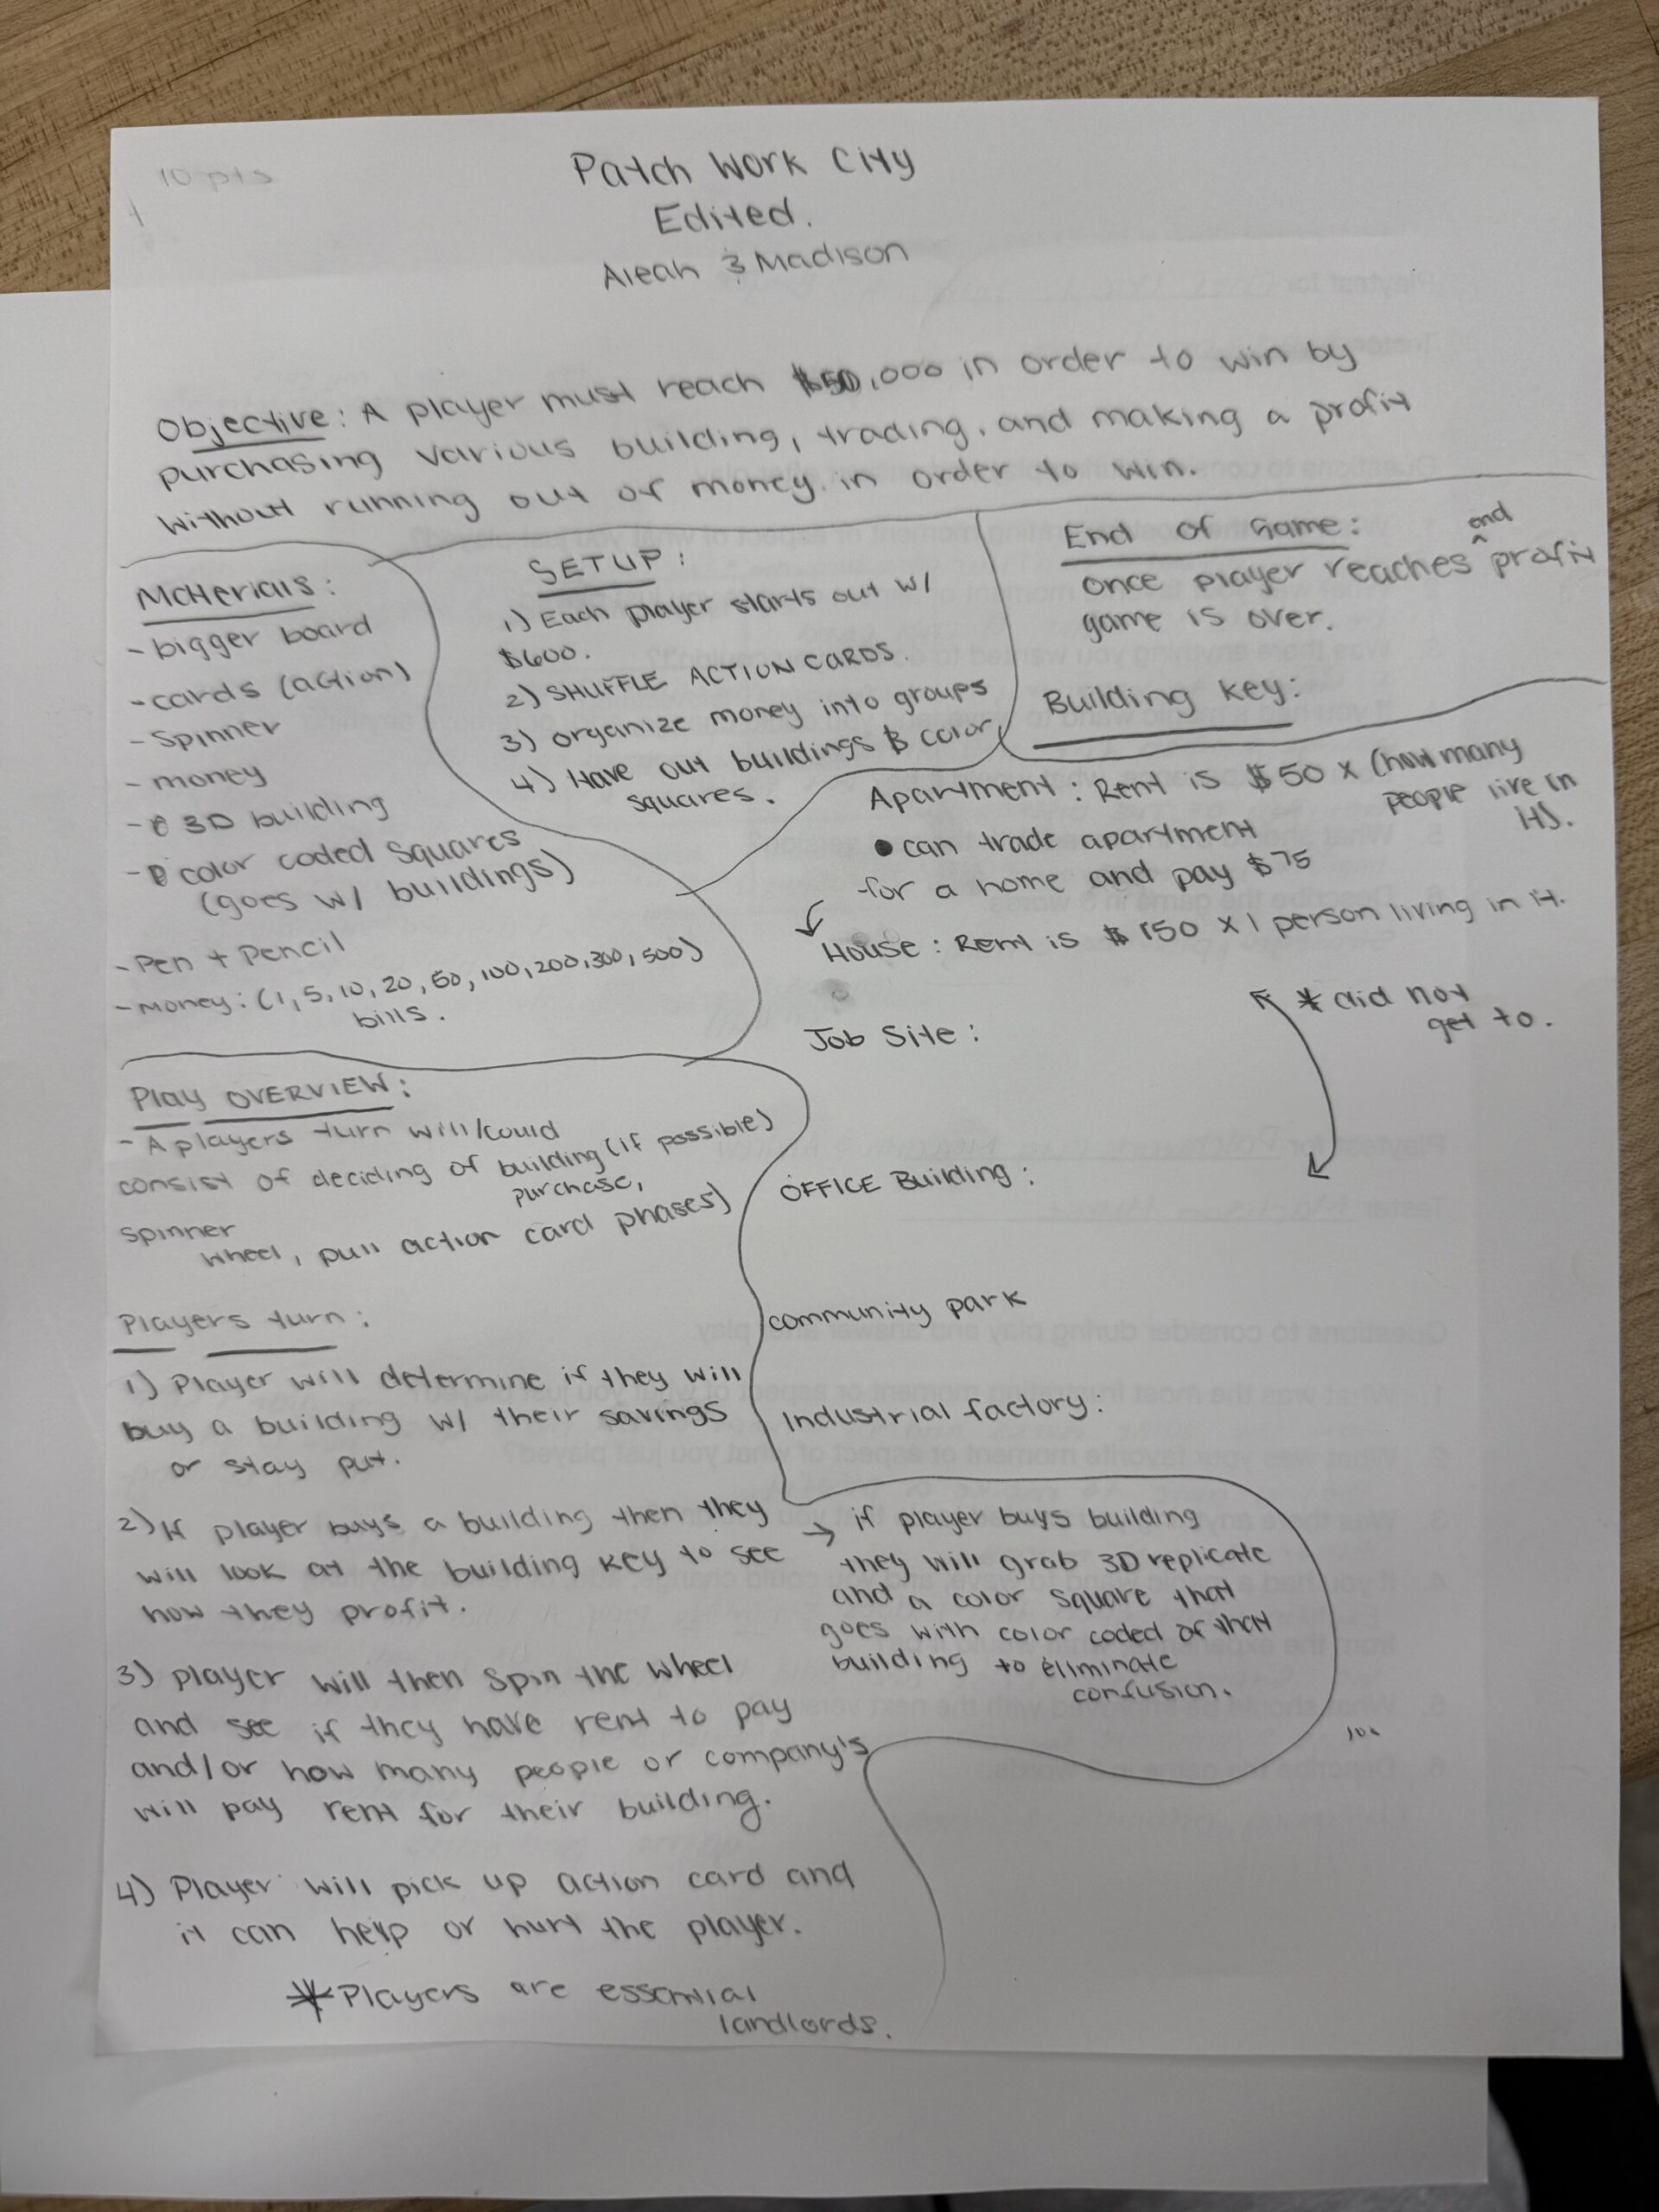 10 pts
Patch Work City
Edited.
Aleah & Madison
Objective: A player must reach $50,000 in order to win by
purchasing various building, trading, and making a profit
without running out of money in order to win.
Materials:
- bigger board
- cards (action)
- Spinner
- money
- 3D building
- color coded squares
(goes w/ buildings)
- Pen + Pencil
- Money: (1, 5, 10, 20, 50, 100, 200, 300, 500)
bills.
SETUP:
1) Each player starts out w/
$600.
2) SHUFFLE ACTION CARDS.
3) organize money into groups
4) Have out buildings & color
squares.
End of Game:
once player reaches end profit
game is over.
Building Key:
Apartment: Rent is $50 x (how many
people live in
it).
• can trade apartment
for a home and pay $75
House: Rent is $150 x 1 person living in it.
* did not
get to.
Job Site:
OFFICE Building:
community park
Industrial factory:
Play OVERVIEW:
- A players turn will/could
consist of deciding of building (if possible)
purchase,
spinner
wheel, pull action card phases)
Players turn:
1) Player will determine if they will
buy a building w/ their savings
or stay put.
2) If player buys a building then they
will look at the building key to see
how they profit.
→ if player buys building
they will grab 3D replicate
and a color square that
goes with color coded of that
building to eliminate
confusion.
3) player will then spin the wheel
and see if they have rent to pay
and/or how many people or company's
will pay rent for their building.
4) Player will pick up action card and
it can help or hurt the player.
* Players are essential
landlords.